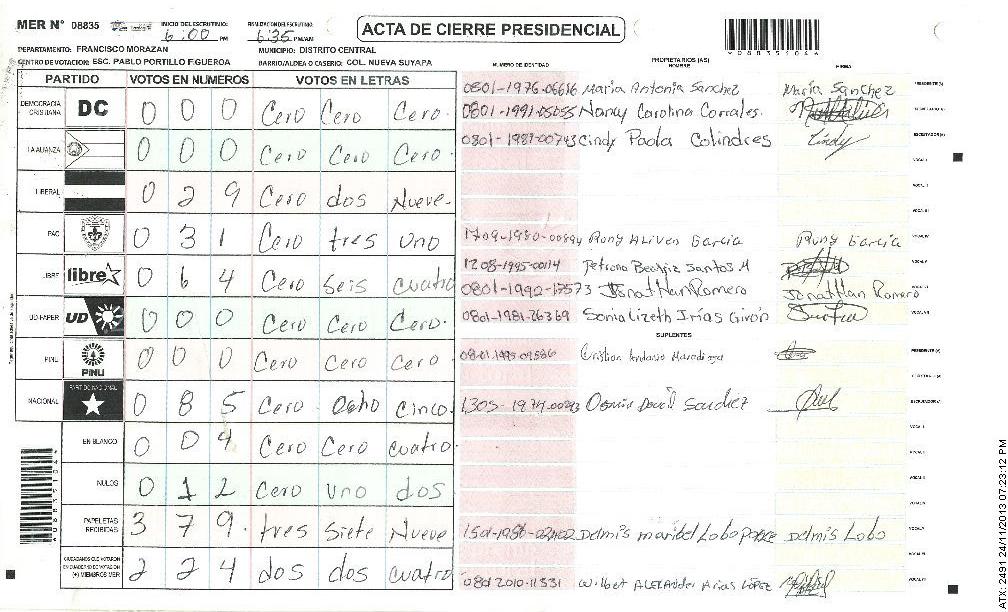 MER N° 08835
INICIO DEL ESCRUTINIO:
6:00 PM
FINALIZACION DEL ESCRUTINIO:
6:35 PM/AM
ACTA DE CIERRE PRESIDENCIAL
DEPARTAMENTO: FRANCISCO MORAZAN
MUNICIPIO: DISTRITO CENTRAL
CENTRO DE VOTACION: ESC. PABLO PORTILLO FIGUEROA
BARRIO/ALDEA O CASERIO: COL. NUEVA SUYAPA
PARTIDO VOTOS EN NUMEROS VOTOS EN LETRAS
DEMOCRACIA CRISTIANA DC 0 0 0 Cero Cero Cero.
LA ALIANZA 0 0 0 Cero Cero Cero.
LIBERAL 0 2 9 Cero dos Nueve.
PAC 0 3 1 Cero tres uno
LIBRE libre 0 6 4 Cero Seis cuatro
UD-FAPER UD 0 0 0 Cero Cero Cero.
PINU PINU 0 0 0 Cero Cero Cero
NACIONAL PARTIDO NACIONAL 0 8 5 Cero Ocho cinco.
EN BLANCO 0 0 4 Cero Cero cuatro.
NULOS 0 1 2 Cero uno dos
PAPELETAS RECIBIDAS 3 7 9. tres siete Nueve
CIUDADANOS QUE VOTARON EN CUADERNO DE VOTACION (+) MIEMBROS MER 2 2 4 dos dos cuatro
NUMERO DE IDENTIDAD PROPIETARIOS (AS) NOMBRE FIRMA
0801-1976-06616 Maria Antonia Sanchez Maria Sanchez PRESIDENTE (A)
0801-1991-05055 Nancy Carolina Corrales. SECRETARIO (A)
0801-1987-00743 Cindy Paola Colindres Cindy ESCRUTADOR (A)
VOCAL I
VOCAL II
VOCAL III
Rony Aliven Garcia Rony Garcia VOCAL IV
1208-1995-00114 Petrona Beatriz Santos M VOCAL V
0801-1992-17573 Jonathan Romero Jonathan Romero VOCAL VI
0801-1981-26369 Sonia Lizeth Irias Girón VOCAL VII
SUPLENTES
Cristian Antonio PRESIDENTE (A)
SECRETARIO (A)
David Sanchez ESCRUTADOR (A)
VOCAL I
VOCAL II
VOCAL III
VOCAL IV
Delmis maribel Lobo Ponce Delmis Lobo VOCAL V
VOCAL VI
0801 2010-11331 Wilbet ALEXANder Arias LÓPEZ VOCAL VII
ATX: 2491 24/11/2013 07:23:12 PM